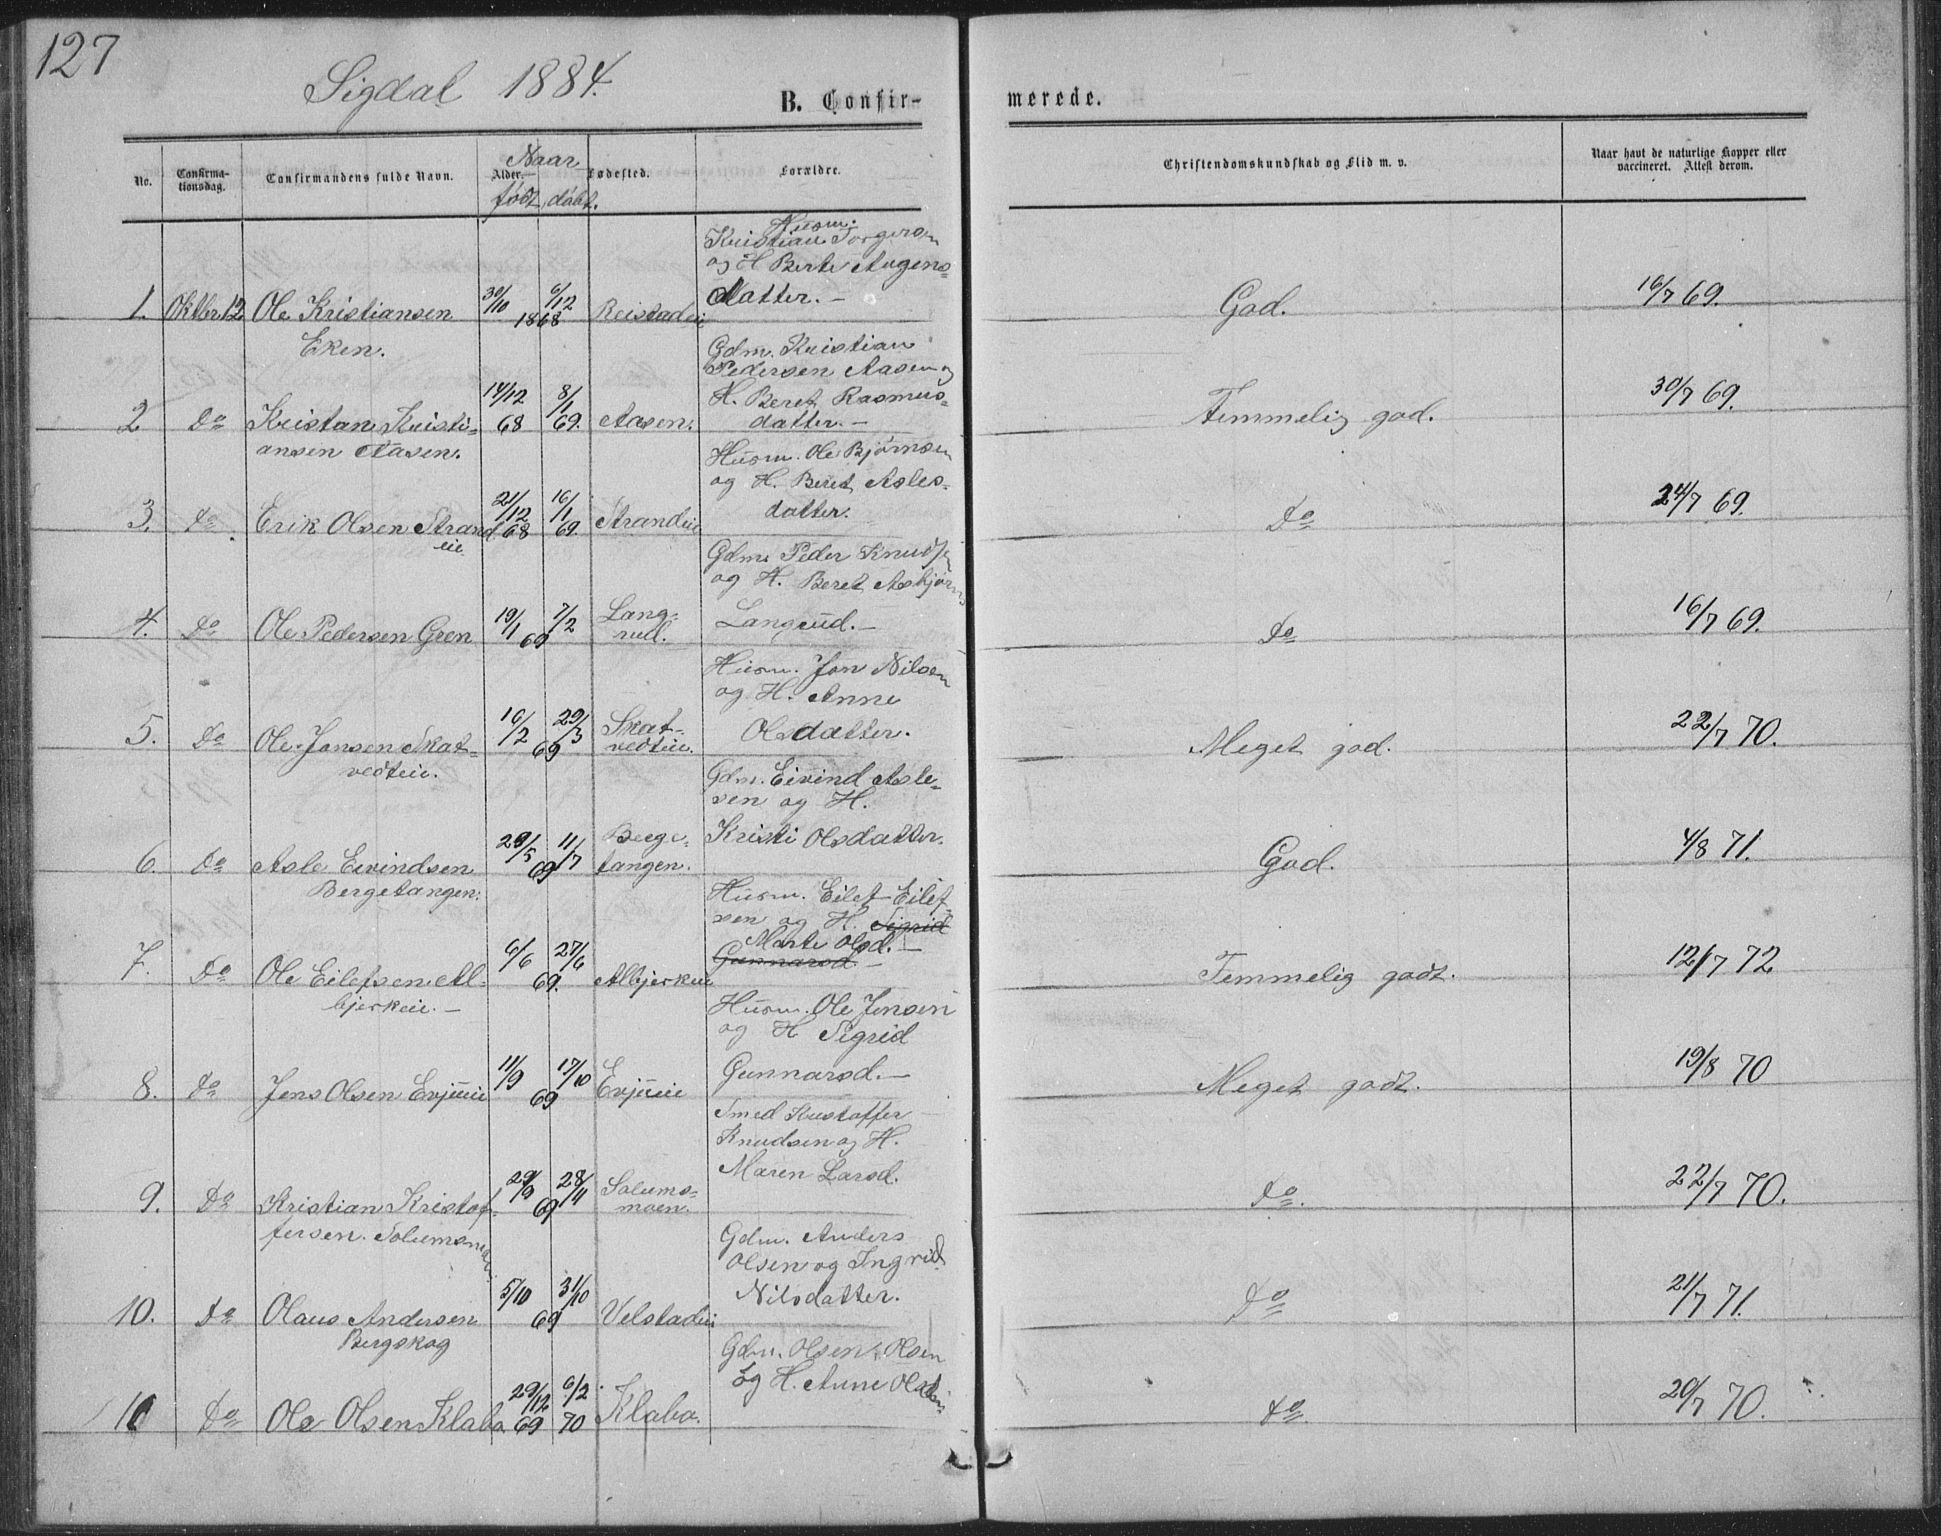 127
Sigdal 1884.
B. Confir-
merede.
No.
Confirma-
tionsdag.
Confirmandens fulde Navn.
Naar
Alder.
født, døbt.
Fødested.
Forældre.
Christendomskundskab og Flid m. v.
Naar havt de naturlige Kopper eller
vaccineret. Attest derom.
Husm.
Kristian Torgersen
og H Berte Augens-
datter. -
1. Oktbr 12 Ole Kristiansen 30/10 6/12 Reistadeie God. 16/7 69.
1868
Eken.
Gdm. Kristian
Pedersen Aasen og
H. Beret Rasmus-
datter. -
2 Do Kristian Kristi- 14/12 8/1 Aasen. Temmelig god. 30/7 69.
68 69.
ansen Aasen.
Husm. Ole Bjørnsen
og H. Beret Asles-
datter.
3. Do Erik Olsen Strand 21/12 16/1 Strandeie Do 24/7 69.
eie 68 69.
Gdm. Peder Knudsen
og H. Beret Asbjørns
Langrud. -
4. Do Ole Pedersen Gren 19/1 7/2 Lang- Do 16/7 69.
69 rud.
Husm. Jon Nilsen
og H. Anne
Olsdatter.
5. Do Ole Jonsen Skat- 16/2 29/3 Skat- Meget god. 22/7 70.
vedteie. 69 vedteie.
Gdm. Eivind Asle-
sen og H.
Kristi Olsdatter.
6. Do Asle Eivindsen 29/5 11/7 Berge- God. 4/8 71.
69 tangen.
Bergetangen.
Husm. Eilef Eilef-
sen og H. Sigrid
Marte Olsd. -
Gunnarsd. -
7. Do Ole Eilefsen Al- 6/6 27/6 Albjerkeie Temmelig godt. 12/7 72
bjerkeie. - 69.
Husm. Ole Jensen
og H Sigrid
Gunnarsd. -
8. Do Jens Olsen Evjueie 11/9 17/10 Evjueie Meget godt. 19/8 70
69
Smed Kristoffer
Knudsen og H.
Maren Larsd.
9. Do Kristian Kristof- 29/9 28/11 Solums- Do. 22/7 70.
69 moen.
fersen Solumsmoen.
Gdm. Anders
Olsen og Ingrid
Nilsdatter.
10. Do Olaus Andersen 5/10 31/10 Velstadeie Do 21/7 71.
69
Bergskog
Gdm. Olsen Olsen
og H. Anne Olsdatter
11 Do Ole Olsen Klaba 29/12 6/2 Klaba. Do 20/7 70.
69 70